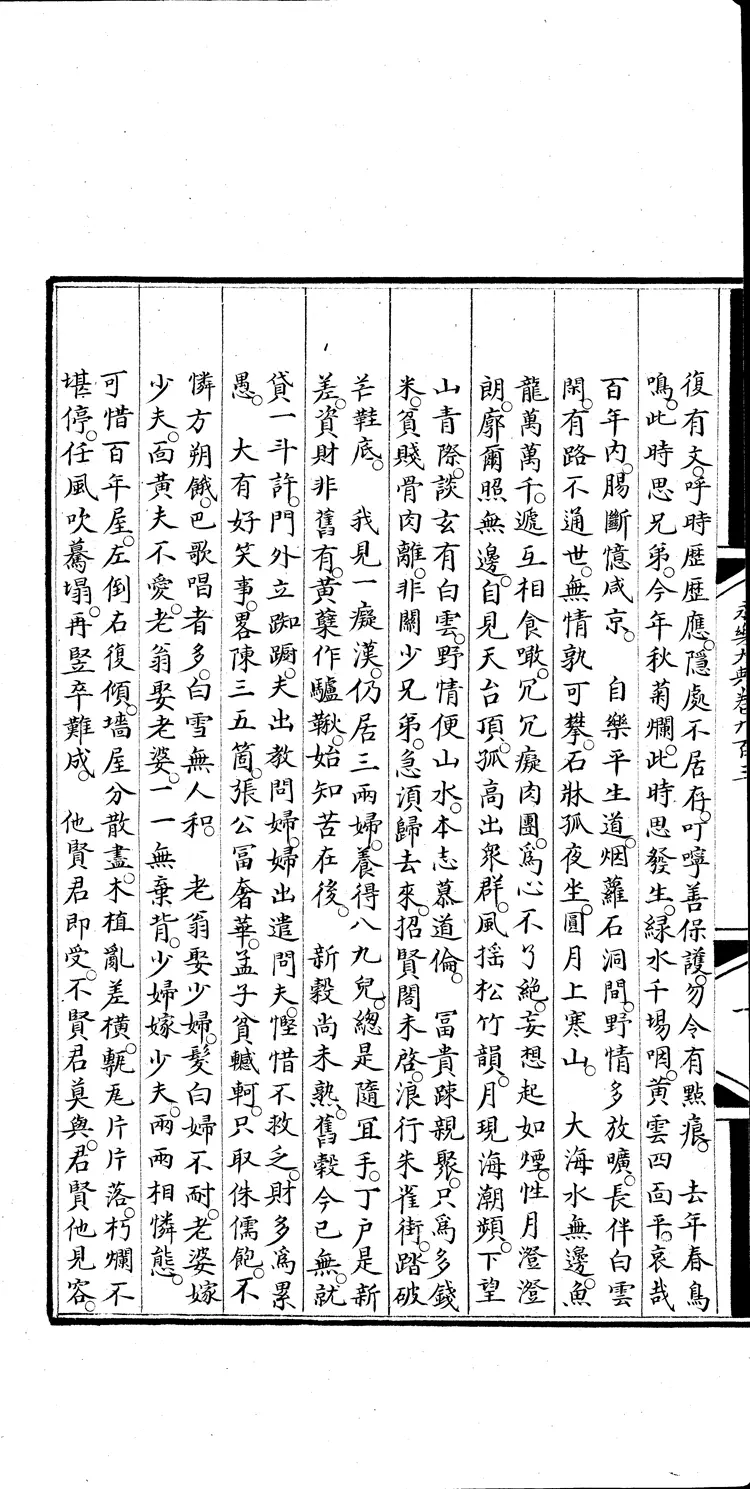 永樂大典卷九百三
復有文。呼時歷歷應。隱處不居存。叮嚀善保護。勿令有點痕。 去年春鳥
鳴。此時思兄弟。今年秋菊爛。此時思發生。緑水千場咽。黄雲四靣平。哀哉
百年內。腸斷憶咸京。 自樂平生道。烟蘿石洞間。野情多放曠。長伴白雲
閑。有路不通世。無情孰可攀。石牀孤夜坐。圓月上寒山。 大海水無邊。魚
龍萬萬千。遞互相食噉。冗冗癡肉團。爲心不了絶。妄想起如煙。性月澄澄
朗。廓爾照無邊。自見天台頂。孤高出衆群。風揺松竹韻。月現海潮頻。下望
山青際。談玄有白雲。野情便山水。本志慕道倫。 冨貴踈親聚。只爲多錢
米。貧賤骨肉離。非關少兄弟。急湏歸去來。招賢閣未啓。浪行朱雀街。踏破
芒鞋底。 我見一癡漢。仍居三兩婦。養得八九兒。緫是隨宜手。丁户是新
差。資財非舊有。黄蘖作驢鞦。始知苦在後。 新穀尚未熟。舊穀今已無。就
貸一斗許。門外立踟蹰。夫出教問婦。婦出遣問夫。慳惜不救乏。財多爲累
愚。 大有好笑事。畧陳三五箇。張公冨奢華。孟子貧轗軻。只取侏儒飽。不
憐方朔餓。巴歌唱者多。白雪無人和。 老翁娶少婦。髮白婦不耐。老婆嫁
少夫。靣黄夫不愛。老翁娶老婆。一一無棄背。少婦嫁少夫。兩兩相憐態。
可惜百年屋。左倒右復傾。墻屋分散盡。木植亂差橫。甎瓦片片落。朽爛不
堪停。任風吹驀塌。再竪卒難成。 他賢君即受。不賢君莫與。君賢他見容。